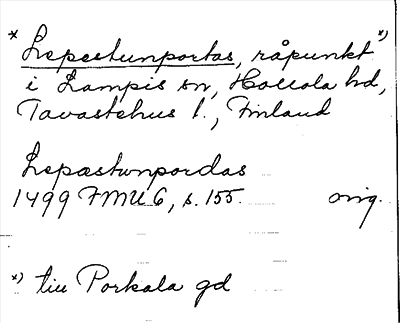 * Lepestunportas, råpunkt *)
i Lampis sn, Hollola hd,
Tavastehus l., Finland
Lepæstunpordas
1499 FMU 6, s. 155. orig.
*) till Porkala gd